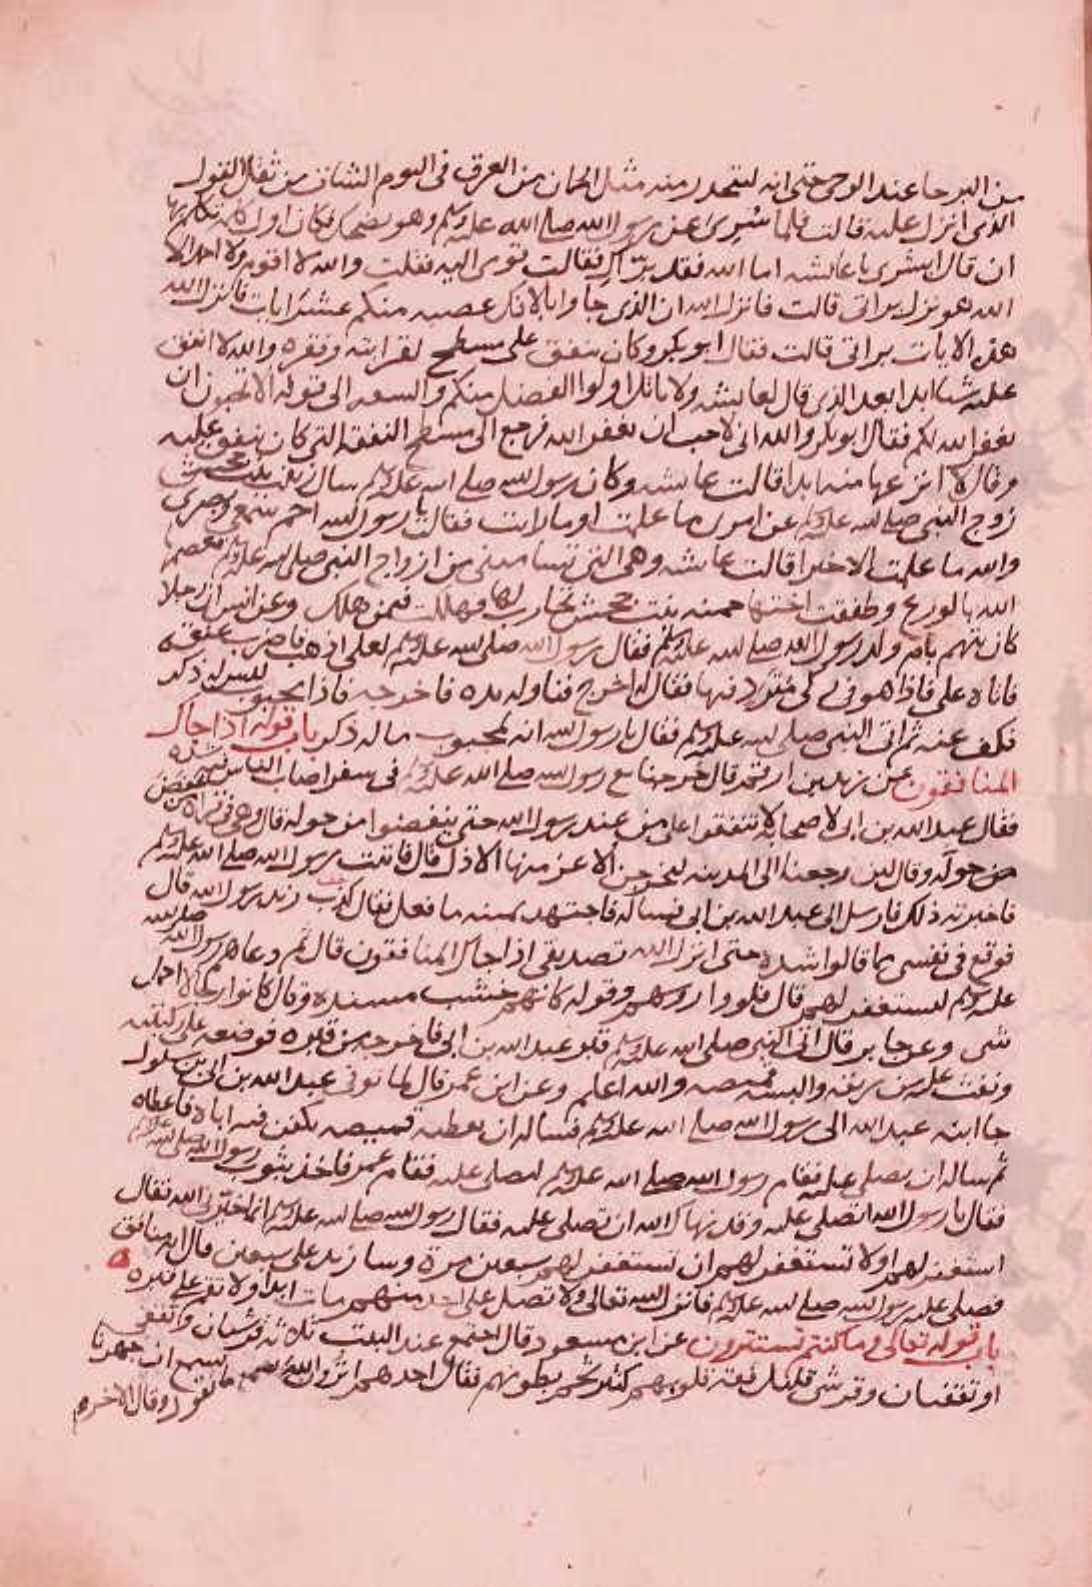 من البرحا عند الوحي حتى انه ليتحدر منه مثل الجمان من العرق في اليوم الشات من ثقل القول
الذي انزل عليه قالت فلما سري عن رسول الله صلى الله عليه وسلم وهو يضحك فكان اول كلمه تكلم بها
ان قال ابشري يا عايشه اما الله فقد براك فقالت لي امي قومي اليه فقلت والله لا اقوم اليه ولا احمد الا
الله هو نزل براتي قالت فانزل الله ان الذي جاوا بالافك عصبه منكم عشر ايات فانزل الله
هذه الايات براتي قالت فقال ابو بكر وكان ينفق على مسطح لقرابته وفقره والله لا انفق
عليه شيا ابدا بعد الذي قال لعايشه ولا ياتل اولوا الفضل منكم والسعه الى قوله الا تحبون ان
يغفر الله لكم فقال ابو بكر والله اني لاحب ان يغفر الله فرجع الى مسطح النفقه التي كان ينفق عليه
وقال لا انزعها منه ابدا قالت عايشه وكان رسول الله صلى الله عليه وسلم سال زينب بنت جحش
زوج النبي صلى الله عليه وسلم عن امري ما علمت او ما رايت فقالت يا رسول الله احمي سمعي وبصري
والله ما علمت الا خيرا قالت عايشه وهي التي تساميني من ازواج النبي صلى الله عليه وسلم فعصمها
الله بالورع وطفقت اختها حمنه بنت جحش تحارب لها فهلكت فيمن هلك وعن انس ان رجلا
كان يتهم بام ولد رسول الله صلى الله عليه وسلم فقال رسول الله صلى الله عليه وسلم لعلي اذهب فاضرب عنقه
فاتاه علي فاذا هو في ركي يتبرد فيها فقال له اخرج فناوله يده فاخرجه فاذا مجبوب ليس له ذكر
فكف عنه ثم اتى النبي صلى الله عليه وسلم فقال يا رسول الله انه لمجبوب ما له ذكر باب قوله اذا جاك
المنافقون عن زيد بن ارقم قال خرجنا مع رسول الله صلى الله عليه وسلم في سفر اصاب الناس فيه شده
فقال عبد الله بن ابي لاصحابه لا تنفقوا على من عند رسول الله حتى ينفضوا من حوله قال وهي في قراة من خفض
من حوله وقال لين رجعنا الى المدينه ليخرجن الاعز منها الاذل قال فاتيت رسول الله صلى الله عليه وسلم
فاخبرته ذلك فارسل الى عبد الله بن ابي فساله فاجتهد يمينه ما فعل فقال كذب زيد رسول الله قال
فوقع في نفسي مما قالوا شده حتى انزل الله تصديقي اذا جاك المنافقون قال ثم دعاهم رسول الله صلى الله
عليه وسلم ليستغفر لهم قال فلووا روسهم وقوله كانهم خشب مسنده وقال كانوا رجالا اجمل
شي وعن جابر قال اتى النبي صلى الله عليه وسلم قبر عبد الله بن ابي فاخرجه من قبره فوضعه على ركبتيه
ونفث عليه من ريقه والبسه قميصه والله اعلم وعن ابن عمر قال لما توفي عبد الله بن ابي بن سلول
جا ابنه عبد الله الى رسول الله صلى الله عليه وسلم فساله ان يعطيه قميصه يكفن فيه اباه فاعطاه
ثم ساله ان يصلي عليه فقام رسول الله صلى الله عليه وسلم ليصلي عليه فقام عمر فاخذ بثوب رسول الله صلى الله عليه وسلم
فقال يا رسول الله اتصلي عليه وقد نهاك الله ان تصلي عليه فقال رسول الله صلى الله عليه وسلم انما خيرني الله فقال
استغفر لهم او لا تستغفر لهم ان تستغفر لهم سبعين مرة وسازيد على سبعين قال انه منافق
فصلى عليه رسول الله صلى الله عليه وسلم فانزل الله تعالى ولا تصل على احد منهم مات ابدا ولا تقم على قبره
باب قوله تعالى وما كنتم تستترون عن ابن مسعود قال اجتمع عند البيت ثلاثه قرشيان وثقفي
او ثقفيان وقرشي قليل فقه قلوبهم كثير شحم بطونهم فقال احدهم اترون الله يسمع ما نقول وقال الاخر يسمع ان جهرنا